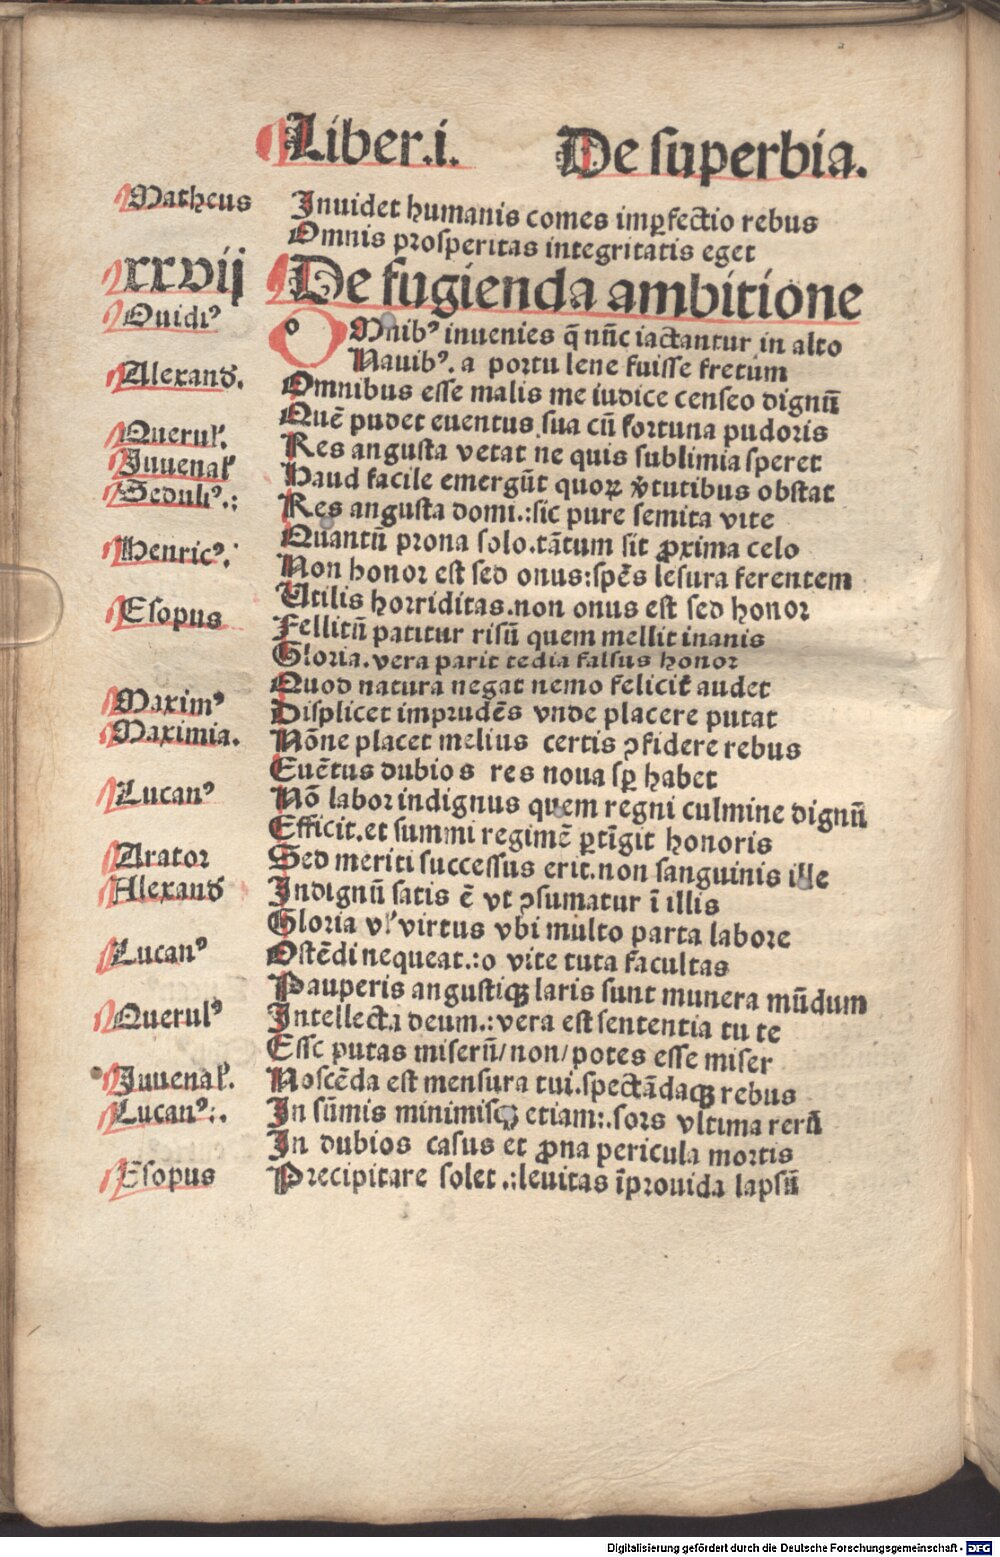 Liber.i. De superbia.
Matheus Inuidet humanis comes imꝑfectio rebus
Omnis prosperitas integritatis eget
xxvij De fugienda ambitione
Ouidiꝰ OMnibꝰ inuenies q̄ nūc iactantur in alto
Nauibꝰ. a portu lene fuisse fretum
Alexand. Omnibus esse malis me iudice censeo dignū
Quē pudet euentus sua cū fortuna pudoris
Querul. Res angusta vetat ne quis sublimia speret
Iuuenal Haud facile emergūt quoꝝ v̄tutibus obstat
Seduliꝰ.: Res angusta domi.:sic pure semita vite
Quantū prona solo.tātum sit ꝓxima celo
Henricꝰ: Non honor est sed onus:spēs lesura ferentem
Utilis horriditas.non onus est sed honor
Esopus Fellitū patitur risū quem mellit inanis
Gloria.vera parit tedia falsus honor
Quod natura negat nemo felicit̄ audet
Maximꝰ Displicet imprudēs vnde placere putat
Maximia. Nōne placet melius certis ꝯfidere rebus
Euētus dubios res noua sꝑ habet
Lucanꝰ Nō labor indignus quem regni culmine dignū
Efficit.et summi regimē ꝑtīgit honoris
Arator Sed meriti successus erit.non sanguinis ille
Alexand Indignū satis ē vt ꝯsumatur ī illis
Gloria vl virtus vbi multo parta labore
Lucanꝰ Ostēdi nequeat.:o vite tuta facultas
Pauperis angustiqꝫ laris sunt munera mūdum
Querulꝰ Intellecta deum.:vera est sententia tu te
Esse putas miserū/non/potes esse miser
Iuuenal. Noscēda est mensura tui.spectādaqꝫ rebus
Lucanꝰ:. In sūmis minimisqꝫ etiam:.sors vltima rerū
In dubios casus et ꝓna pericula mortis
Esopus Precipitare solet.:leuitas īprouida lapsū
Digitalisierung gefördert durch die Deutsche Forschungsgemeinschaft - DFG